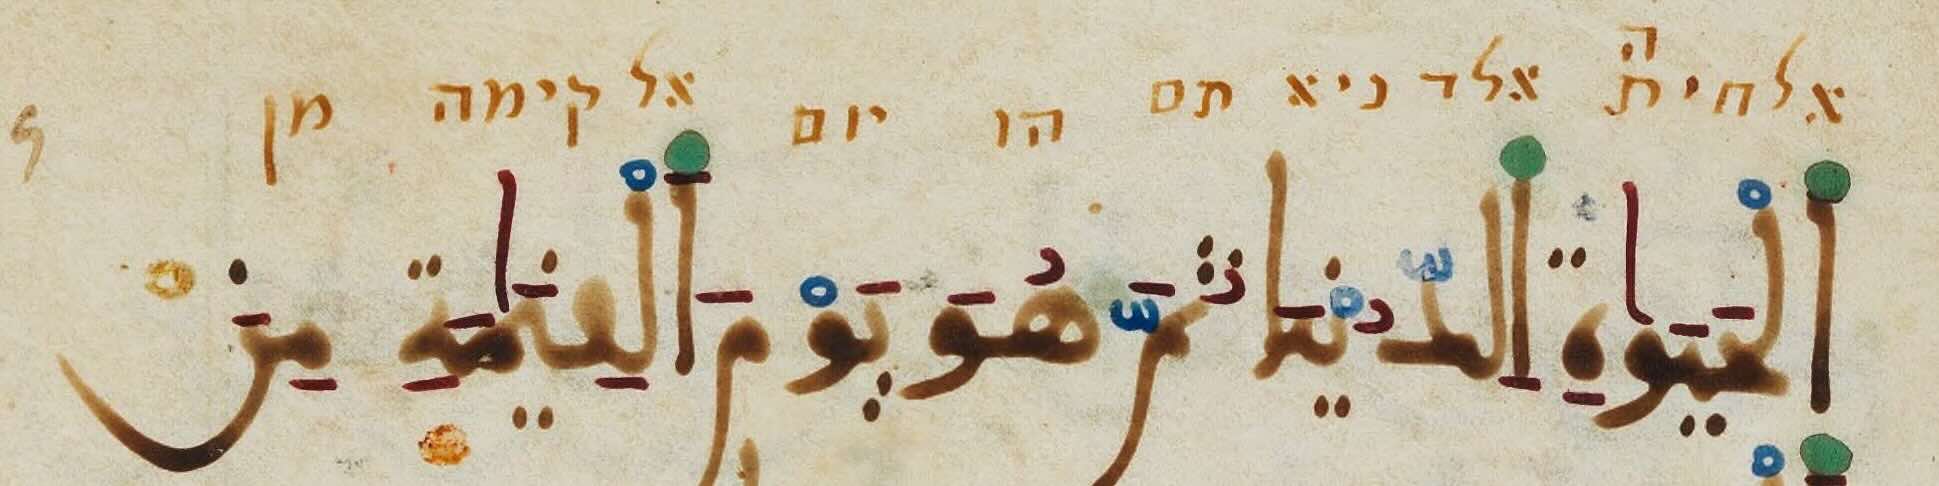 אלחיתה אלד ניא תם הו יום אל קימה מן
الْحَيَوٰةِ الدُّنْيَا ثُمَّ هُوَ يَوْمَ الْقِيَٰمَةِ مِنَ